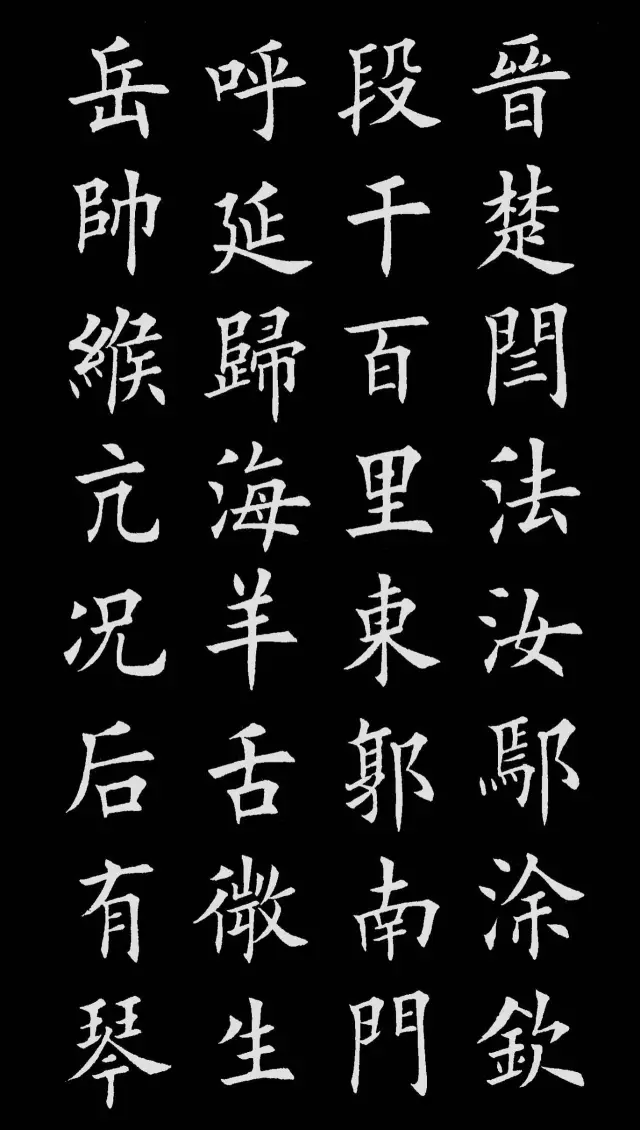 晉楚閆法汝鄢涂欽
段干百里東郭南門
呼延歸海羊舌微生
岳帥緱亢况后有琴